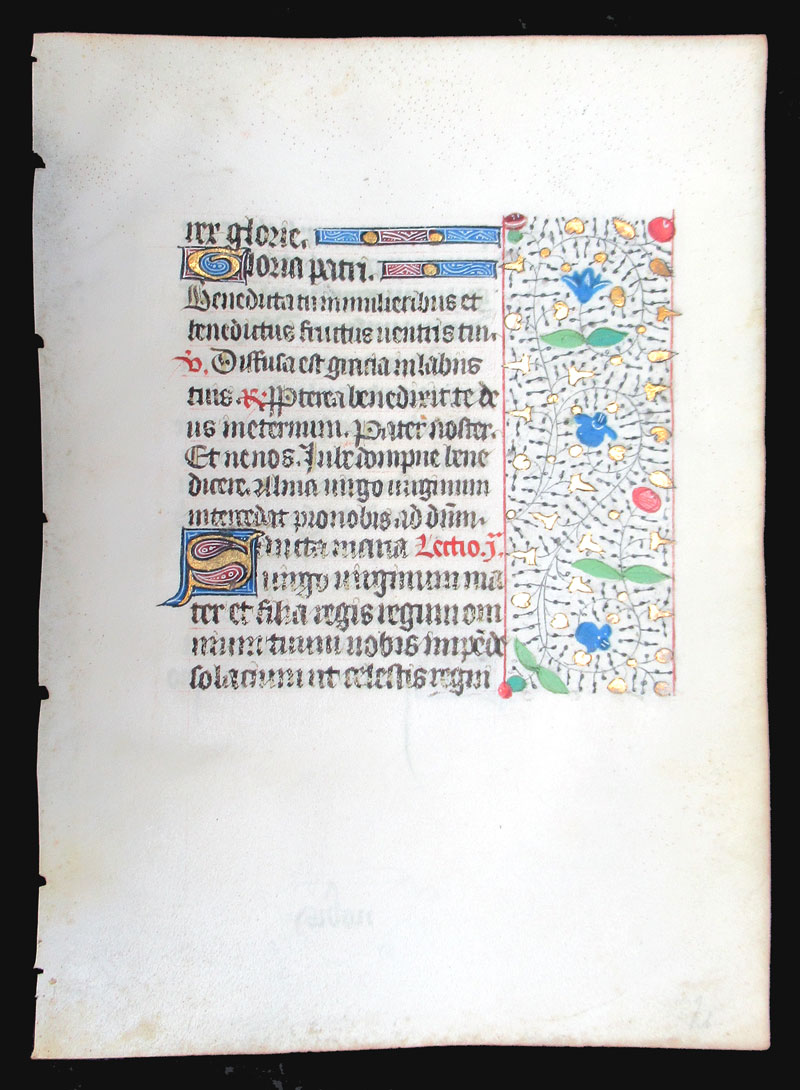 rex glorie.
Gloria patri.
Benedicta tu in mulieribus et
benedictus fructus uentris tui.
V. Diffusa est gracia in labiis
tuis. R. Ppterea benedixit te de
us in eternum. Pater noster.
Et ne nos. Iube dompne bene
dicere. Alma uirgo uirginum
intercedat pro nobis ad dūm.
Sancta maria Lectio. J.ª
uirgo uirginum ma
ter et filia regis regum om
nium tuum nobis impēde
solacium ut celestis regni